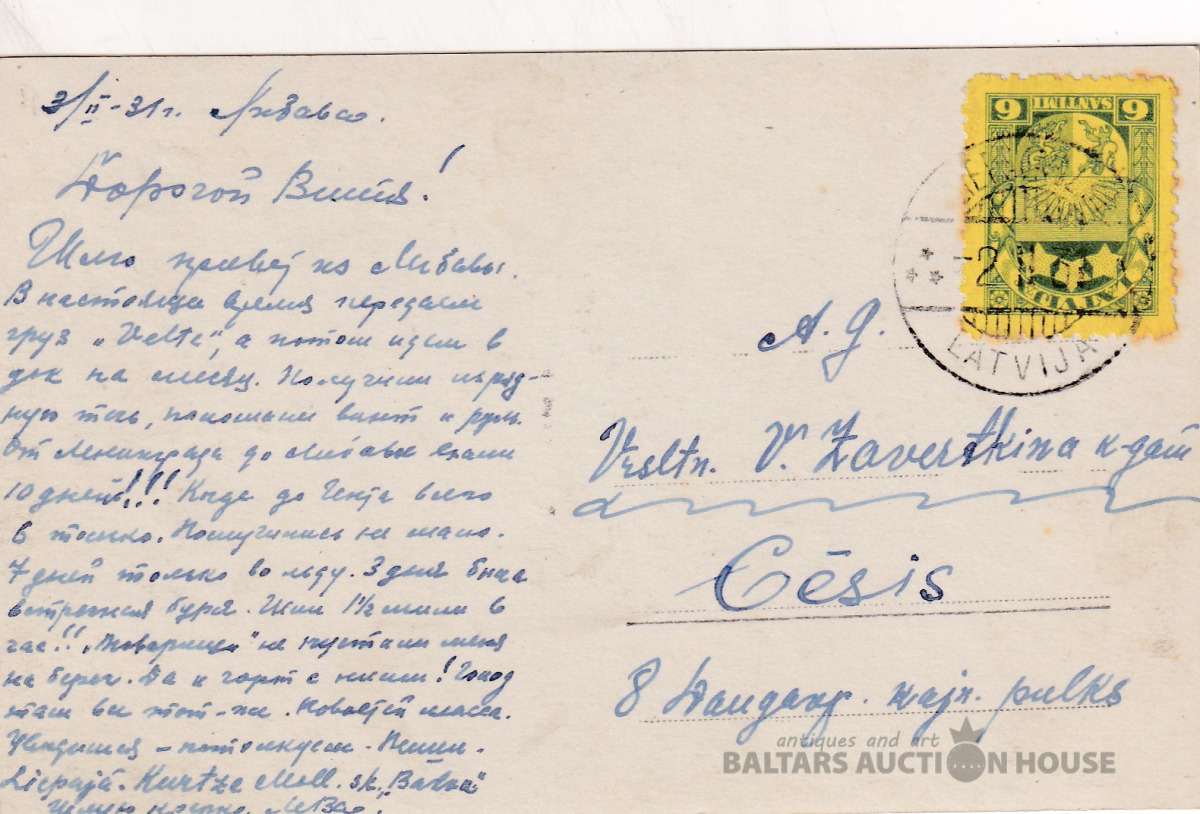 2/II-31г. Либава.
Дорогой Витя!
Шлю привет из Либавы.
В настоящ время передаем
груз „Velta", а потом идем в
док на месяц. Получили поряд-
ную течь, поломали винт и руль.
От Ленинграда до Либавы шли
10 дней!!! Когда до Гента всего
6 только. Помучились не мало.
7 дней только во льду. 3 дня была
встречная буря. Шли 1½ мили в
час!! „Товарищи" не пустили меня
на берег. Да и чорт с ними! Голод
там все тот-же. Новостей масса.
Увидимся – потолкуем. Пиши.
Liepajā. Kurtze Moll. sk.
Целую крепко.
6 SANTIMI 6
LATVIJA
-2
LATVIJA
A. g.
Vrsltn. V. Zavertkina k-gam
Cēsis
8 Daugavp. kajn. pulks
antiques and art
BALTARS AUCTION HOUSE